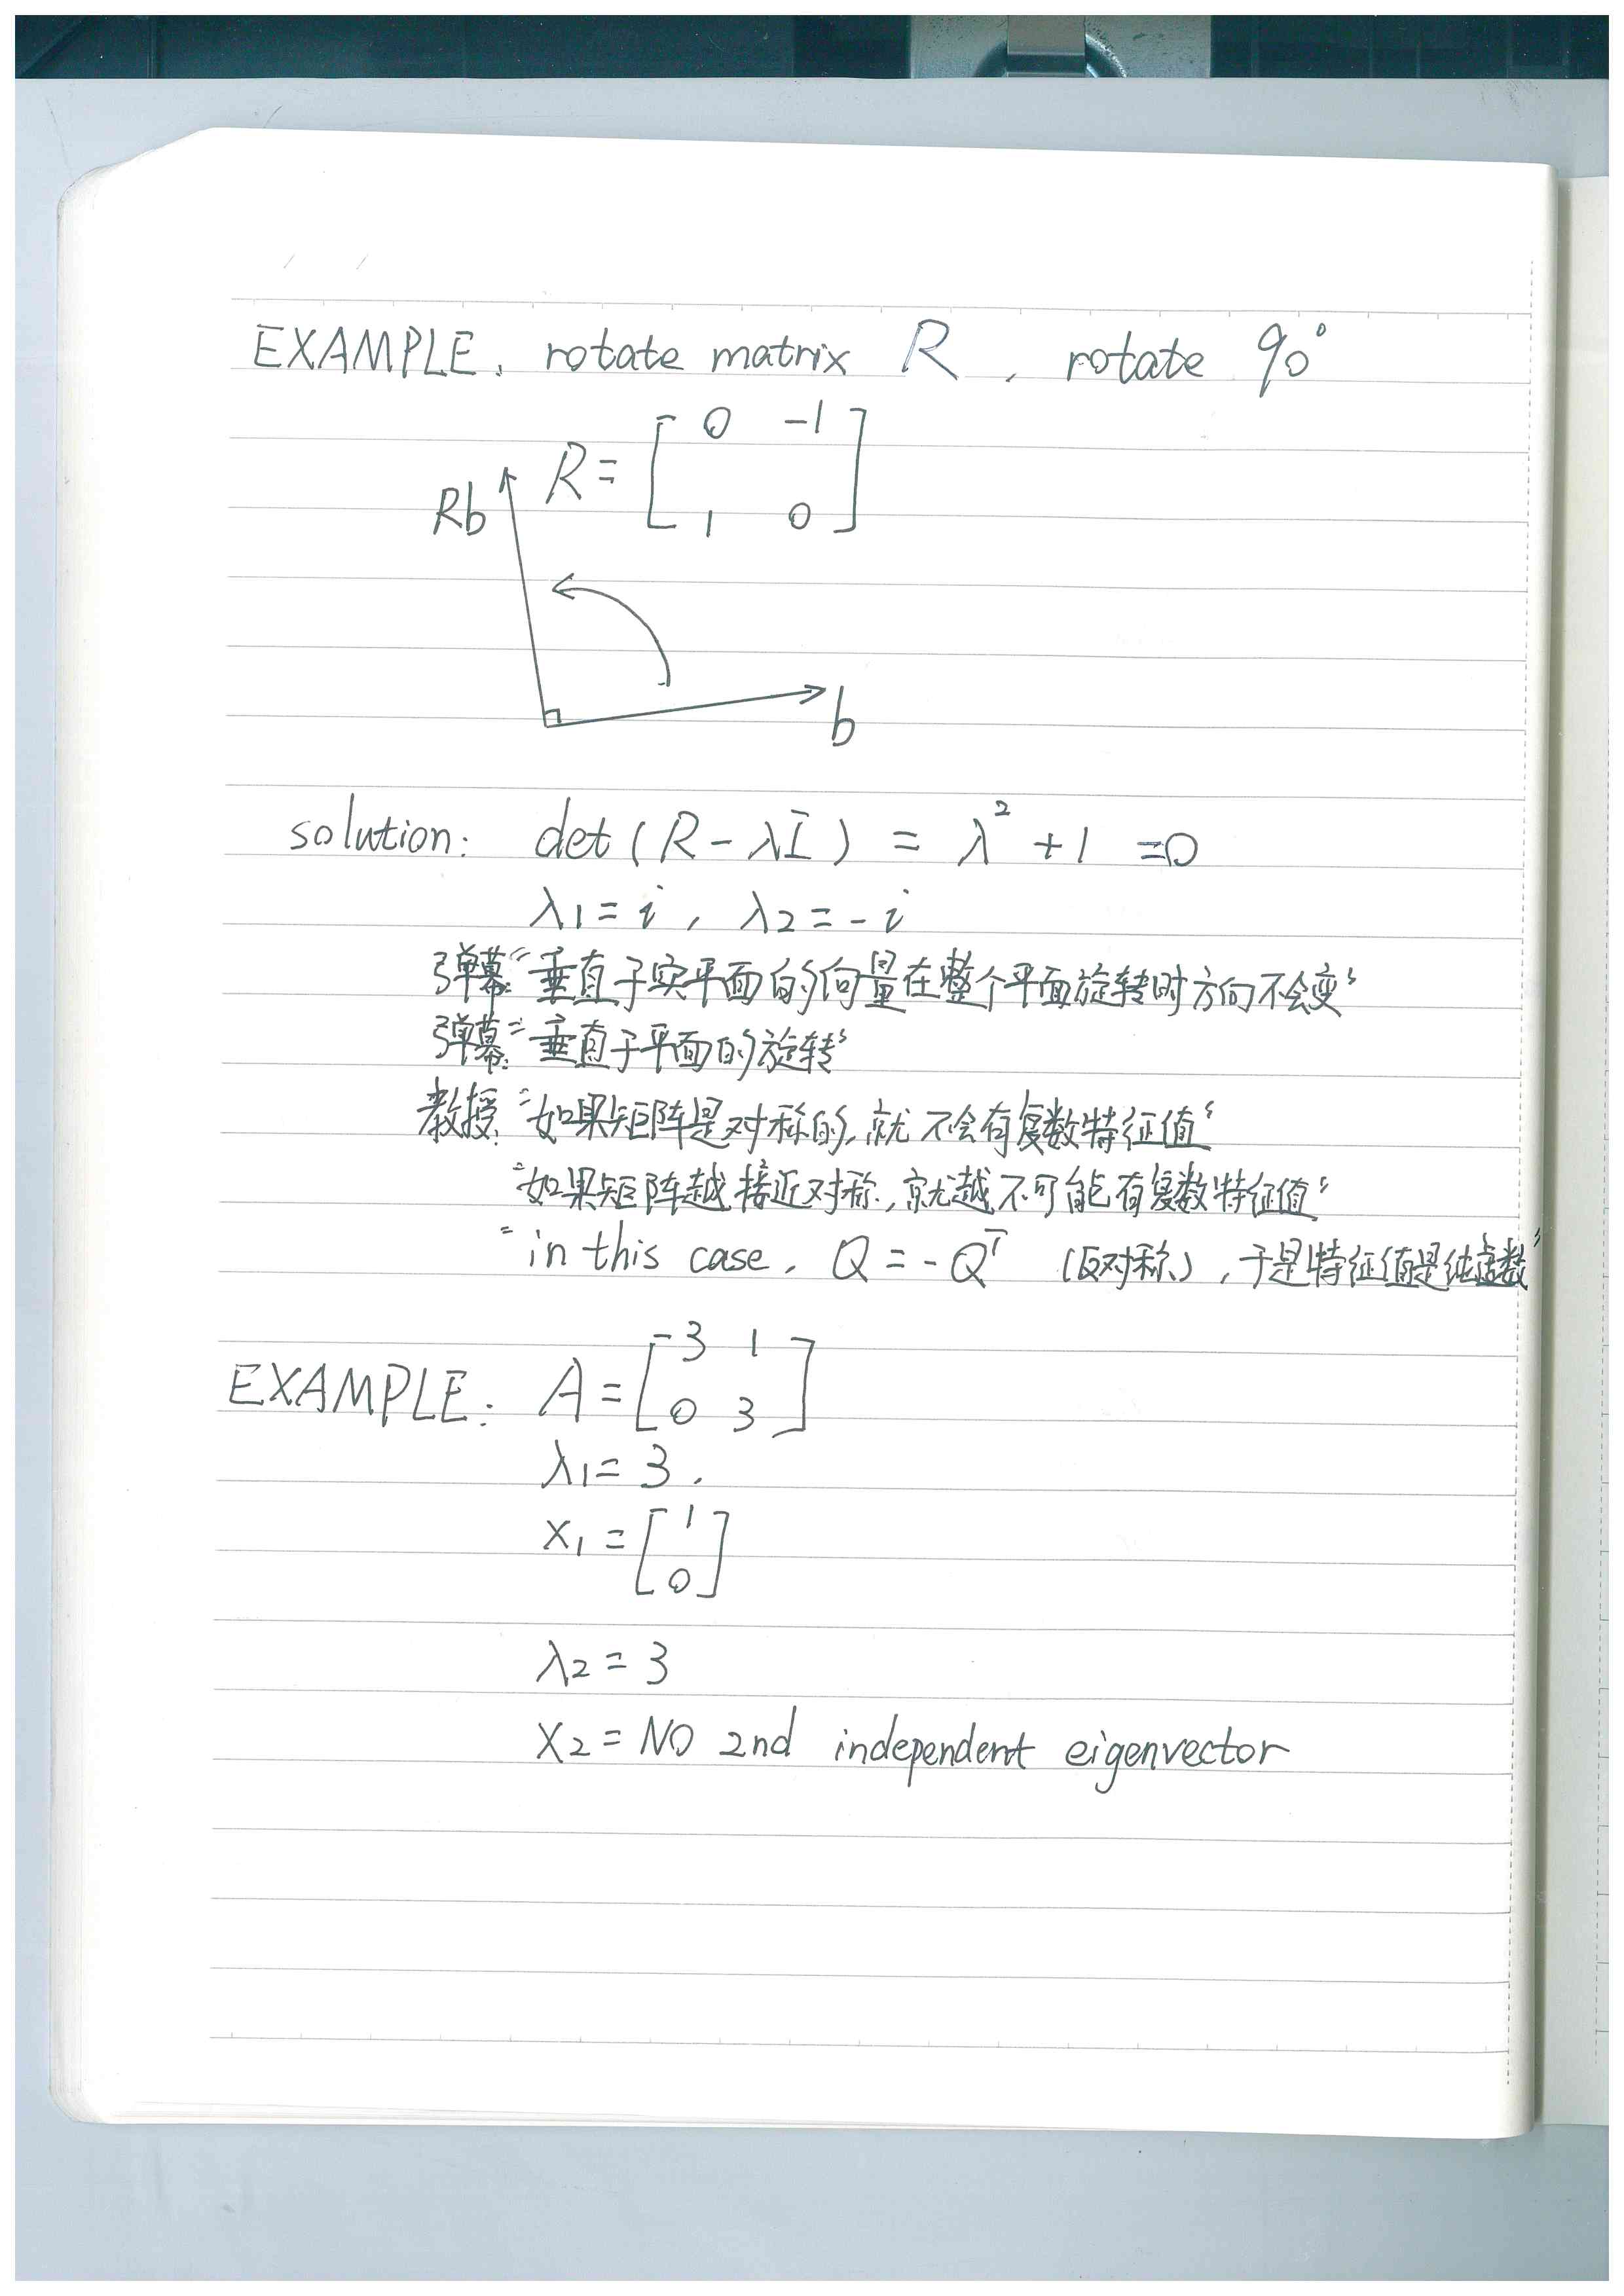 EXAMPLE. rotate matrix R , rotate 90°
R = [ 0 -1
1 0 ]
Rb
b
solution: det (R - λI) = λ² + 1 = 0
λ1 = i , λ2 = - i
弹幕:"垂直于实平面的向量在整个平面旋转时方向不会变"
弹幕:"垂直于平面的旋转"
教授:"如果矩阵是对称的,就不会有复数特征值"
"如果矩阵越接近对称,就越不可能有复数特征值"
"in this case, Q = - Qᵀ (反对称),于是特征值是纯虚数"
EXAMPLE: A = [ 3 1
0 3 ]
λ1 = 3 .
x1 = [ 1
0 ]
λ2 = 3
x2 = NO 2nd independent eigenvector